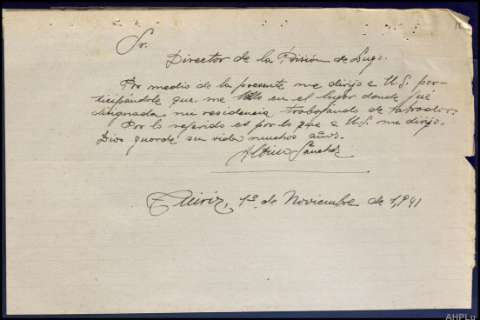 Sr.
Director de la Prisión de Lugo.
Por medio de la presente me dirijo a U.S. par-
ticipándote que me en el lugar donde fué
designada mi residencia trabajando de labrador.
Por lo referido es por lo que a U.S. me dirijo.
Dios guarde su vida muchos años.
Albino Sánchez
1º de Noviembre de 1,941
AHPLu